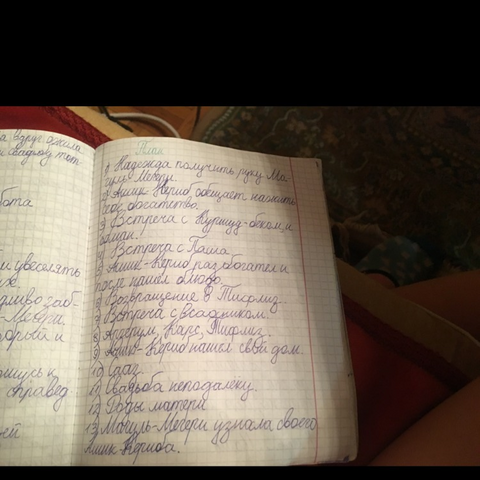 а вдруг ожила
и свадьбу тот
бота
и увеселять
-Мегери.
справед
ей
План
1) Надежда получить руку Ма
гуль-Мегери.
2) Ашик-Кериб обещает нажить
себе богатство.
3) Встреча с Куршуд-беком, и
обман.
4) Встреча с Паша
5) Ашик-Кериб разбогател и
после нашёл блюдо.
6) Возвращение в Тифлиз.
7) Встреча с всадником.
8) Арзерум, Карс, Тифлиз.
9) Ашик-Кериб нашёл свой дом
10) Сааз.
11) Свадьба неподалёку.
12) Роды матери
13) Могуль-Мегери узнала своего
Ашик-Кериба.